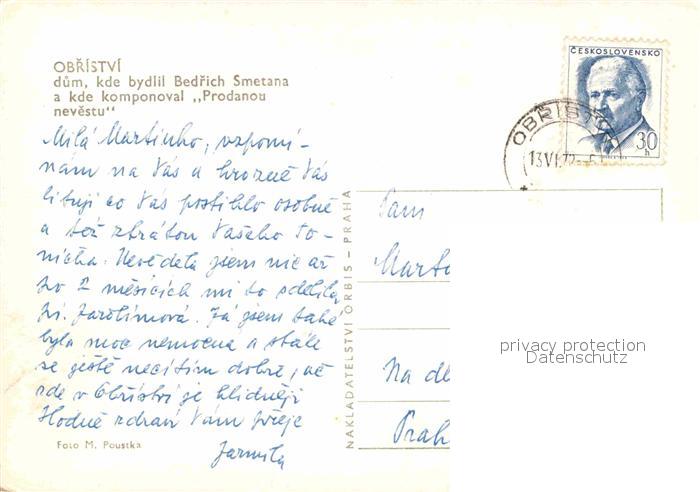 OBŘÍSTVÍ
dům, kde bydlil Bedřich Smetana
a kde komponoval „Prodanou
nevěstu"
Milá Martinko, vzpomí-
nám na Vás a hrozně Vás
lituji co Vás postihlo osobně
a též ztrátou Vašeho To-
níčka. Nevěděla jsem nic až
po 2 měsících mi to sdělila
Jarolímová. Já jsem také
byla moc nemocna a stále
se ještě necítím dobře, ač
zde v Obříství je klidněji
Hodně zdraví Vám přeje
Jarmila
Foto M. Poustka
NAKLADATELSTVÍ ORBIS - PRAHA
ČESKOSLOVENSKO
30 h
OBŘÍSTVÍ
13.VI.72
Paní
Marti
Na
Prah
privacy protection
Datenschutz